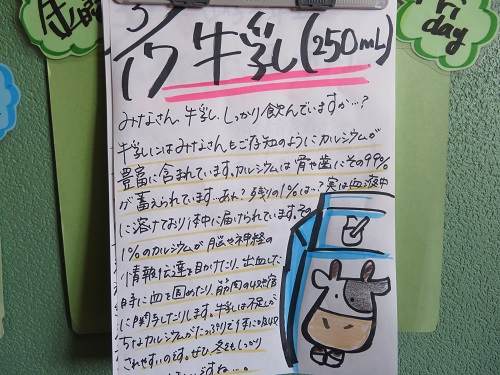 金曜
Friday
3/17 牛乳(250mL)
みなさん、牛乳、しっかり飲んでいますか…?
牛乳にはみなさんもご存知のようにカルシウムが
豊富に含まれています。カルシウムは骨や歯にその99%
が蓄えられています。あれ?残りの1%は…?実は血液中
に溶けており体中に届けられています。その
1%のカルシウムが脳や神経の
情報伝達を助けたり、出血した
時に血を固めたり、筋肉の収縮
に関与したりします。牛乳は不足しが
ちなカルシウムがたっぷりで体に吸収
されやすいのです。ぜひ、冬もしっかり